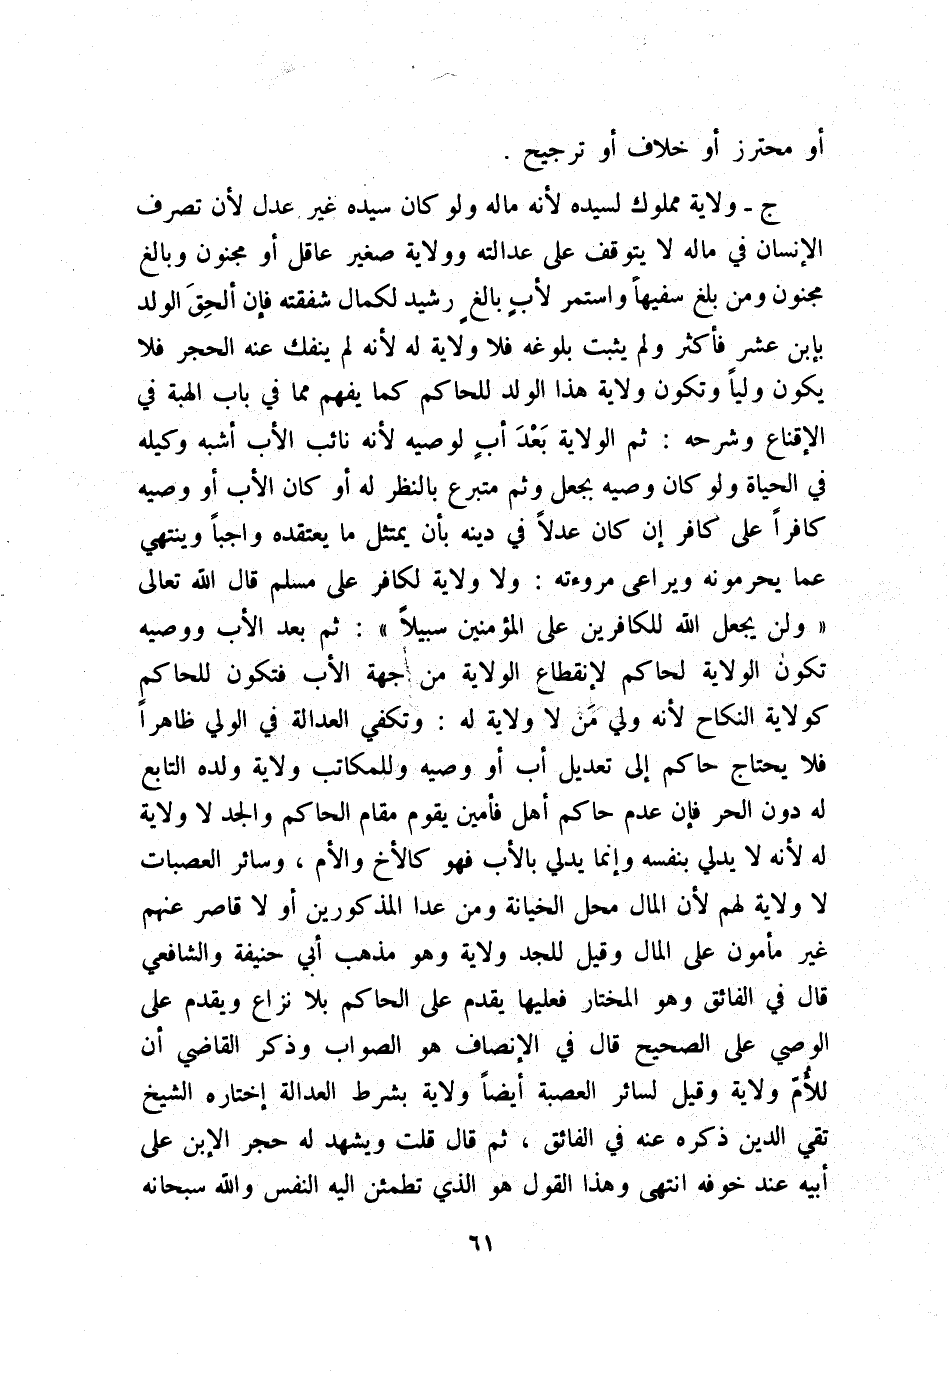 أو محترز أو خلاف أو ترجيح .
ج - ولاية مملوك لسيده لأنه ماله ولو كان سيده غير عدل لأن تصرف
الإنسان في ماله لا يتوقف على عدالته وولاية صغير عاقل أو مجنون وبالغ
مجنون ومن بلغ سفيهاً واستمر لأبٍ بالغٍ رشيد لكمال شفقته فإن ألحِقَ الولد
بإبن عشر فأكثر ولم يثبت بلوغه فلا ولاية له لأنه لم ينفك عنه الحجر فلا
يكون ولياً وتكون ولاية هذا الولد للحاكم كما يفهم مما في باب الهبة في
الإقناع وشرحه : ثم الولاية بَعْدَ أبٍ لوصيه لأنه نائب الأب أشبه وكيله
في الحياة ولو كان وصيه بجعل وثم متبرع بالنظر له أو كان الأب أو وصيه
كافراً على كافر إن كان عدلاً في دينه بأن يمتثل ما يعتقده واجباً وينتهي
عما يحرمونه ويراعى مروءته : ولا ولاية لكافر على مسلم قال الله تعالى
« ولن يجعل الله للكافرين على المؤمنين سبيلاً » : ثم بعد الأب ووصيه
تكون الولاية لحاكم لإنقطاع الولاية من جهة الأب فتكون للحاكم
كولاية النكاح لأنه ولي مَن لا ولاية له : وتكفي العدالة في الولي ظاهراً
فلا يحتاج حاكم إلى تعديل أب أو وصيه وللمكاتب ولاية ولده التابع
له دون الحر فإن عدم حاكم أهل فأمين يقوم مقام الحاكم والجد لا ولاية
له لأنه لا يدلي بنفسه وإنما يدلي بالأب فهو كالأخ والأم ، وسائر العصبات
لا ولاية لهم لأن المال محل الخيانة ومن عدا المذكورين أو لا قاصر عنهم
غير مأمون على المال وقيل للجد ولاية وهو مذهب أبي حنيفة والشافعي
قال في الفائق وهو المختار فعليها يقدم على الحاكم بلا نزاع ويقدم على
الوصي على الصحيح قال في الإنصاف هو الصواب وذكر القاضي أن
للأُمّ ولاية وقيل لسائر العصبة أيضاً ولاية بشرط العدالة إختاره الشيخ
تقي الدين ذكره عنه في الفائق ، ثم قال قلت ويشهد له حجر الإبن على
أبيه عند خوفه انتهى وهذا القول هو الذي تطمئن اليه النفس والله سبحانه
٦١